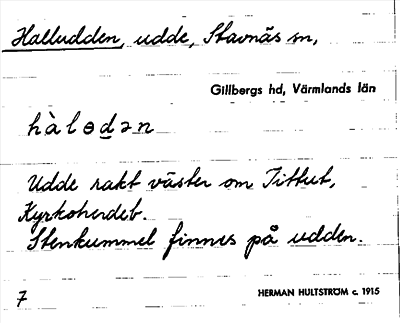 Halludden, udde, Stavnäs sn,
Gillbergs hd, Värmlands län
hàlɵdən
Udde rakt väster om Tittut,
Kyrkoherdeb.
Stenkummel finnes på udden.
7
HERMAN HULTSTRÖM c. 1915